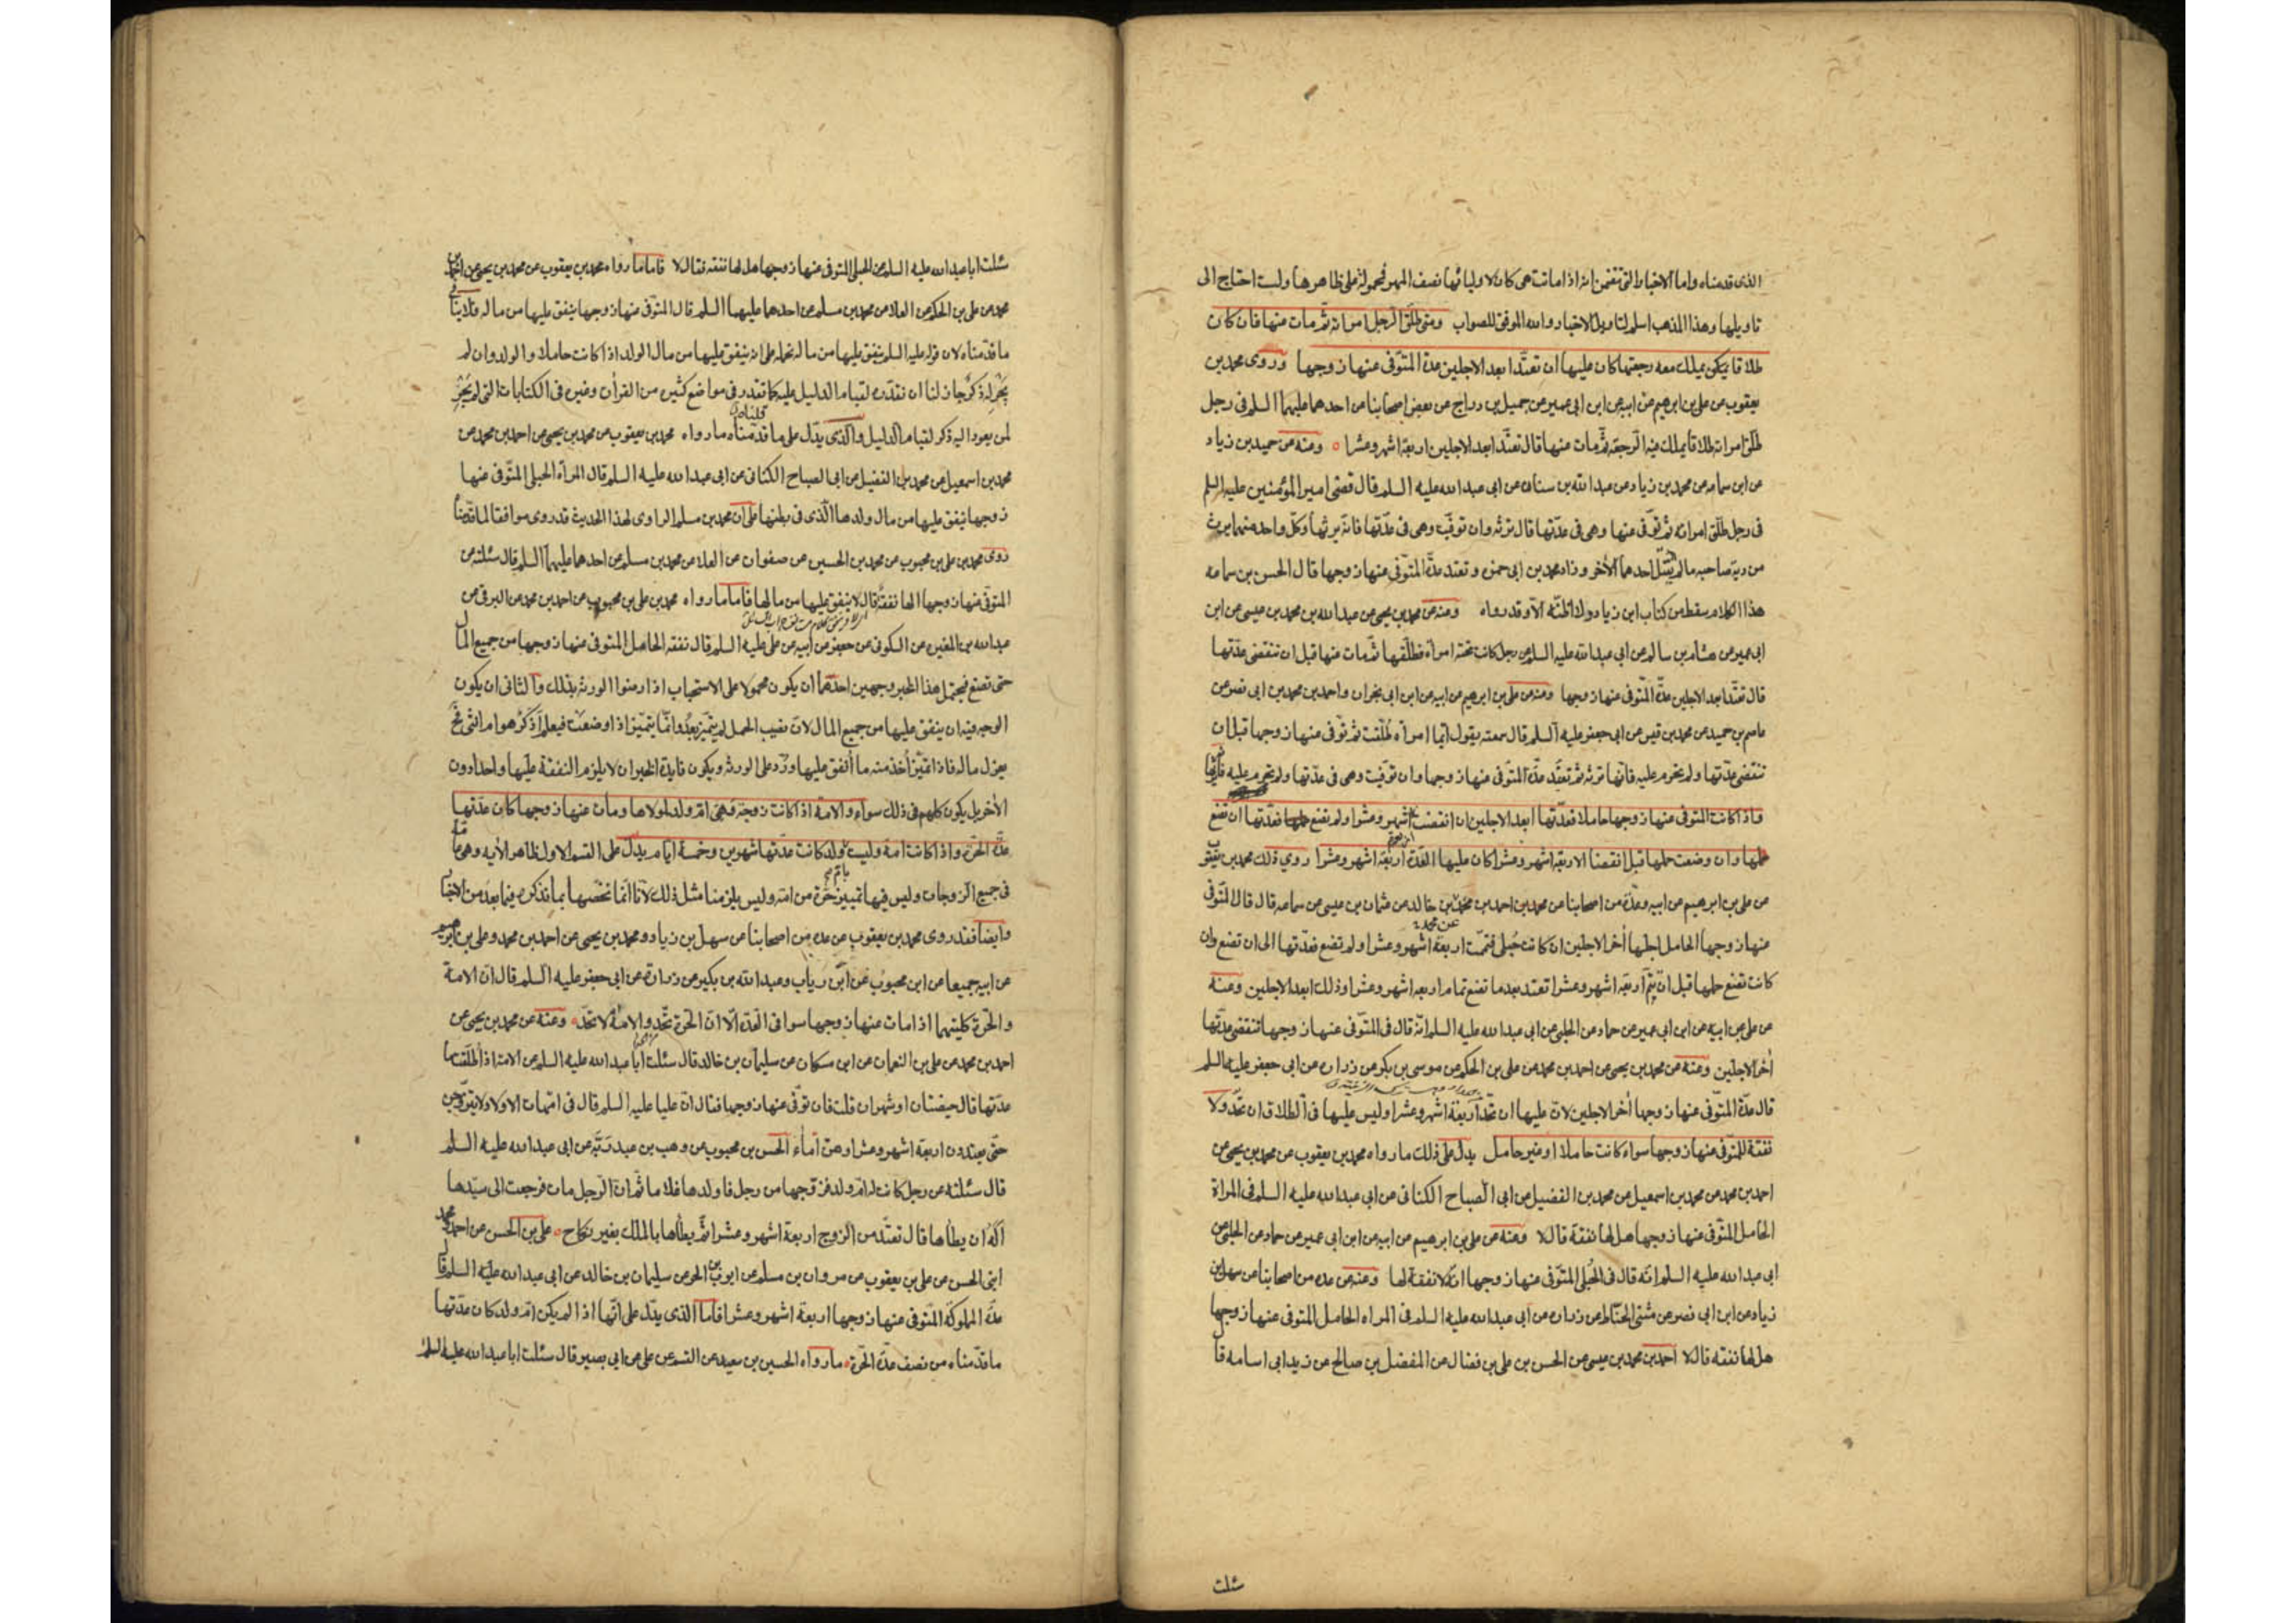 الذى قدمناه واما الاخبار التى تتضمن انه اذا ماتت هى كان لاوليائها نصف المهر فمحمولة على ظاهرها ولست احتاج الى
تاويلها وهذا المذهب اسلم لتاويل الاخبار والله الموفق للصواب ومتى طلق الرجل امراته ثم مات عنها فان كان
طلاقا يكون يملك معه رجعتها كان عليها ان تعتد ابعد الاجلين عدة المتوفى عنها زوجها وروى محمد بن
يعقوب عن على بن ابرهيم عن ابيه عن ابن ابى عمير عن جميل بن دراج عن بعض اصحابنا عن احدهما عليهما السلم فى رجل
طلق امراته طلاقا يملك فيه الرجعة ثم مات عنها قال تعتد ابعد الاجلين اربعة اشهر وعشرا ومنه عن حميد بن زياد
عن ابن سماعه عن محمد بن زياد عن عبد الله بن سنان عن ابى عبد الله عليه السلم قال قضى امير المؤمنين عليه السلم
فى رجل طلق امراته ثم توفى عنها وهى فى عدتها قال ترثه وان توفيت وهى فى عدتها فانه يرثها وكل واحد منهما يرث
من دية صاحبه ما لم يقتل احدهما الآخر وزاد محمد بن ابى حمزه وتعتد عدة المتوفى عنها زوجها قال الحسن بن سماعه
هذا الكلام سقط من كتاب ابن زياد ولا اظنه الا وقد رواه ومنه عن محمد بن يحيى عن عبد الله بن محمد بن عيسى عن ابن
ابى عمير عن هشام بن سالم عن ابى عبد الله عليه السلم عن رجل كانت تحته امرأة فطلقها ثم مات عنها قبل ان تنقضى عدتها
قال تعتد ابعد الاجلين عدة المتوفى عنها زوجها ومنه عن على بن ابرهيم عن ابيه عن ابن ابى نجران واحمد بن محمد بن ابى نصر عن
عاصم بن حميد عن محمد بن قيس عن ابى جعفر عليه السلم قال سمعته يقول ايما امرأه طلقت ثم توفى عنها زوجها قبل ان
تنقضى عدتها ولم تحرم عليه فانها ترثه ثم تعتد عدة المتوفى عنها زوجها وان توفيت وهى فى عدتها ولم تحرم عليه فانه يرثها
واذا كانت المتوفى عنها زوجها حاملا فعدتها ابعد الاجلين ان انقضت اشهر وعشرا ولم تضع حملها فعدتها ان تضع
حملها وان وضعت حملها قبل انقضا الاربعة اشهر وعشر كان عليها العدة اربعة اشهر وعشرا روى ذلك محمد بن يعقوب
عن على بن ابرهيم عن ابيه وعدة من اصحابنا عن محمد بن احمد بن محمد بن خالد عن عثمان بن عيسى عن سماعه قال قال المتوفى
عنها زوجها الحامل اجلها آخر الاجلين ان كانت حبلى فتمت اربعة اشهر وعشرا ولم تضع فعدتها الى ان تضع وان
كانت تضع حملها قبل ان يتم اربعة اشهر وعشرا تعتد بعد ما تضع تمام اربعه اشهر وعشرا وذلك ابعد الاجلين وعنه
عن على عن ابيه عن ابن ابى عمير عن حماد عن الحلبى عن ابى عبد الله عليه السلم انه قال فى المتوفى عنها زوجها تنقضى عدتها
آخر الاجلين وعنه عن محمد بن يحيى عن احمد بن محمد عن على بن الحكم عن موسى بن بكر عن زراره عن ابى جعفر عليه السلم
قال عدة المتوفى عنها زوجها آخر الاجلين لان عليها ان تحد اربعة اشهر وعشرا وليس عليها فى الطلاق ان تحد ولا
نفقة للمتوفى عنها زوجها سواء كانت حاملا او غير حامل يدل على ذلك ما رواه محمد بن يعقوب عن محمد بن يحيى عن
احمد بن محمد عن محمد بن اسمعيل عن محمد بن الفضيل عن ابى الصباح الكنانى عن ابى عبد الله عليه السلم فى المراة
الحامل المتوفى عنها زوجها هل لها نفقة قال لا وعنه عن على بن ابرهيم عن ابيه عن ابن ابى عمير عن حماد عن الحلبى عن
ابى عبد الله عليه السلم انه قال فى الحبلى المتوفى عنها زوجها انه لا نفقة لها وعنه عن عده من اصحابنا عن سهل بن
زياد عن ابن ابى نصر عن مثنى الحناط عن زراره عن ابى عبد الله عليه السلم فى المراه الحامل المتوفى عنها زوجها
هل لها نفقه قال لا احمد بن محمد بن عيسى عن الحسن بن على بن فضال عن المفضل بن صالح عن زيد ابى اسامه قال
سئلت
سئلت ابا عبد الله عليه السلم عن الحبلى المتوفى عنها زوجها هل لها نفقه فقال لا فاما ما رواه محمد بن يعقوب عن محمد بن يحيى عن احمد بن
محمد عن على بن الحكم عن العلا عن محمد بن مسلم عن احدهما عليهما السلم قال المتوفى عنها زوجها ينفق عليها من ماله فلا ينافى
ما قدمناه لان قوله عليه السلم ينفق عليها من ماله نحمله على انه ينفق عليها من مال الولد اذا كانت حاملا والولد وان لم
يجر له ذكر جاز لنا ان نقدره لقيام الدليل عليه كما تقدر فى مواضع كثيره من القرآن وغيره فى الكنايات التى لم يجر
لمن يعود اليه ذكر لقيام الدليل والذى يدل على ما قدمناه ما رواه محمد بن يعقوب عن محمد بن يحيى عن احمد بن محمد عن
محمد بن اسمعيل عن محمد بن الفضيل عن ابى الصباح الكنانى عن ابى عبد الله عليه السلم قال المرأة الحبلى المتوفى عنها
زوجها ينفق عليها من مال ولدها الذى فى بطنها على ان محمد بن مسلم الراوى لهذا الحديث قد روى موافقا لما قدمنا
روى محمد بن على بن محبوب عن محمد بن الحسين عن صفوان عن العلا عن محمد بن مسلم عن احدهما عليهما السلم قال سئلته عن
المتوفى عنها زوجها الها نفقة قال لا ينفق عليها من مالها فاما ما رواه محمد بن على بن محبوب عن احمد بن محمد عن البرقى عن
عبد الله بن المغيره عن السكونى عن جعفر عن ابيه عن على عليه السلم قال نفقه الحامل المتوفى عنها زوجها من جميع المال
حتى تضع فيحتمل هذا الخبر وجهين احدهما ان يكون محمولا على الاستحباب اذا رضوا الورثه بذلك والثانى ان يكون
الوجه فيه ان ينفق عليها من جميع المال لان نصيب الحمل لم يتميز بعد وانما يتميز اذا وضعت فيعلم اذكر هو ام انثى
يعزل ماله فاذا تميز اخذ منه ما انفق عليها ورد على الورثه ويكون فايدة الخبر ان لا يلزم النفقة عليها واحدا دون
الآخر بل يكون كلهم فى ذلك سواء والامة اذا كانت زوجة وهى ام ولد لمولاها ومات عنها زوجها كان عدتها
عدة الحرة واذا كانت امة وليست ولد كانت عدتها شهرين وخمسة ايام يدل على القسم الاول ظاهر الآيه وهى عامة
فى جميع الزوجات وليس فيها تمييز حرة من امة وليس يلزمنا مثل ذلك لانا انما نخصها بما نذكره فيما بعد من الاخبار
وايضا فقد روى محمد بن يعقوب عن عده من اصحابنا عن سهل بن زياد ومحمد بن يحيى عن احمد بن محمد وعلى بن ابرهيم
عن ابيه جميعا عن ابن محبوب عن ابن رياب وعبد الله بن بكير عن زرارة عن ابى جعفر عليه السلم قال ان الامة
والحرة كلتيهما اذا مات عنها زوجها سوا فى العدة الا ان الحرة تحد والامة لا تحد وعنه عن محمد بن يحيى عن
احمد بن محمد عن على بن النعمان عن ابن مسكان عن سليمان بن خالد قال سئلت ابا عبد الله عليه السلم عن الامة اذا طلقت ما
عدتها قال حيضتان او شهران قلت فان توفى عنها زوجها فقال ان عليا عليه السلم قال فى امهات الاولاد لا يتزوجن
حتى يعتددن اربعة اشهر وعشرا وهن اماء الحسن بن محبوب عن وهب بن عبد ربه عن ابى عبد الله عليه السلم
قال سئلته عن رجل كانت له ام ولد فزوجها من رجل فاولدها غلاما ثم ان الرجل مات فرجعت الى سيدها
اله ان يطأها قال تعتد من الزوج اربعة اشهر وعشرا ثم يطأها بالملك بغير نكاح على بن الحسن عن احمد ومحمد
ابنى الحسن عن على بن يعقوب عن مروان بن مسلم عن ايوب بن الحر عن سليمان بن خالد عن ابى عبد الله عليه السلم قال
عدة المملوكة المتوفى عنها زوجها اربعة اشهر وعشرا فاما الذى يدل على انها اذا لم يكن ام ولد كان عدتها
ما قدمناه من نصف عدة الحرة ما رواه الحسين بن سعيد عن القسم عن على عن ابى بصير قال سئلت ابا عبد الله عليه السلم